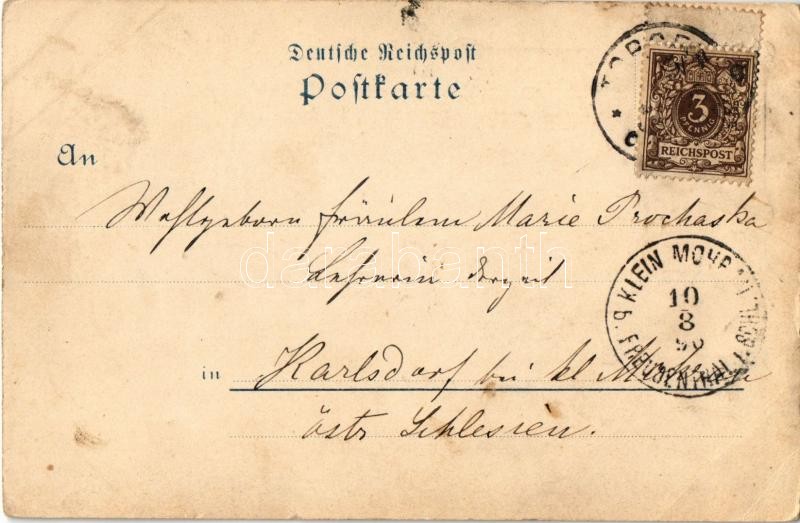 Deutsche Reichspost
Postkarte
3
PFENNIG
REICHSPOST
An
Wohlgeborn Fräulein Marie Prochaska
Lehrerin derzeit
darabanth
KLEIN MOHRAU
10
8
FREUDENTHAL
in Karlsdorf bei kl Mohrau
östr Schlesien.